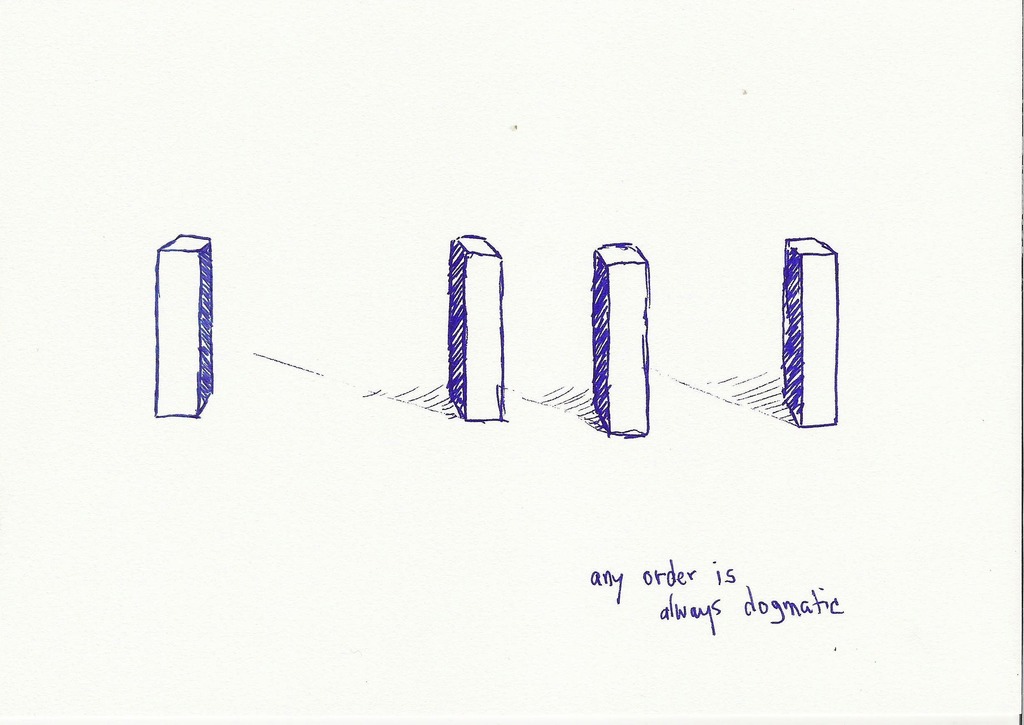 any order is
always dogmatic